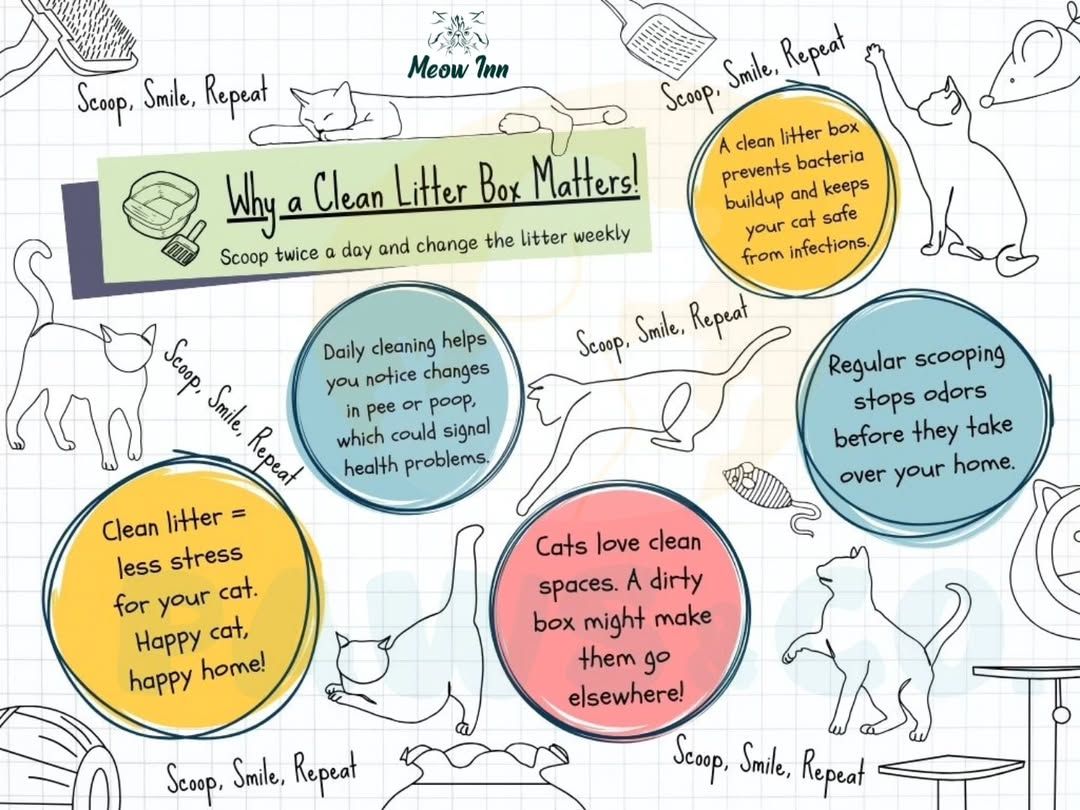 Meow Inn
Scoop, Smile, Repeat
Scoop, Smile, Repeat
Why a Clean Litter Box Matters!
Scoop twice a day and change the litter weekly
A clean litter box
prevents bacteria
buildup and keeps
your cat safe
from infections.
Daily cleaning helps
you notice changes
in pee or poop,
which could signal
health problems.
Scoop, Smile, Repeat
Regular scooping
stops odors
before they take
over your home.
Scoop, Smile, Repeat
Clean litter =
less stress
for your cat.
Happy cat,
happy home!
Cats love clean
spaces. A dirty
box might make
them go
elsewhere!
PAWS & CO.
Scoop, Smile, Repeat
Scoop, Smile, Repeat